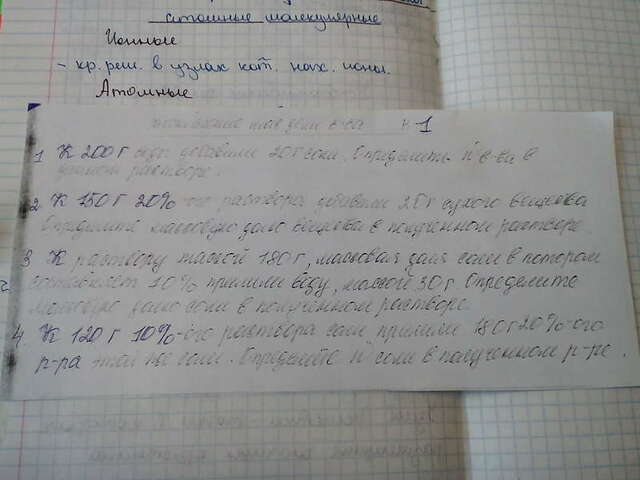 атомные молекулярные
Ионные
- кр. реш. в узлах кот. нах. ионы.
Атомные
в-ва В 1
1 К 200 г воды добавили 20 г соли. Определите в-ва в
растворе.
2 К 150 г 20%-ого раствора добавили 20 г сухого вещества
Определите массовую долю вещества в полученном растворе.
3 К раствору массой 180 г, массовая доля соли в котором
составляет 10% прилили воду, массой 30 г Определите
массовую долю соли в полученном растворе.
4. К 120 г 10%-ого раствора соли прилили 180 г 20%-ого
р-ра этой же соли. Определите соли в полученном р-ре.